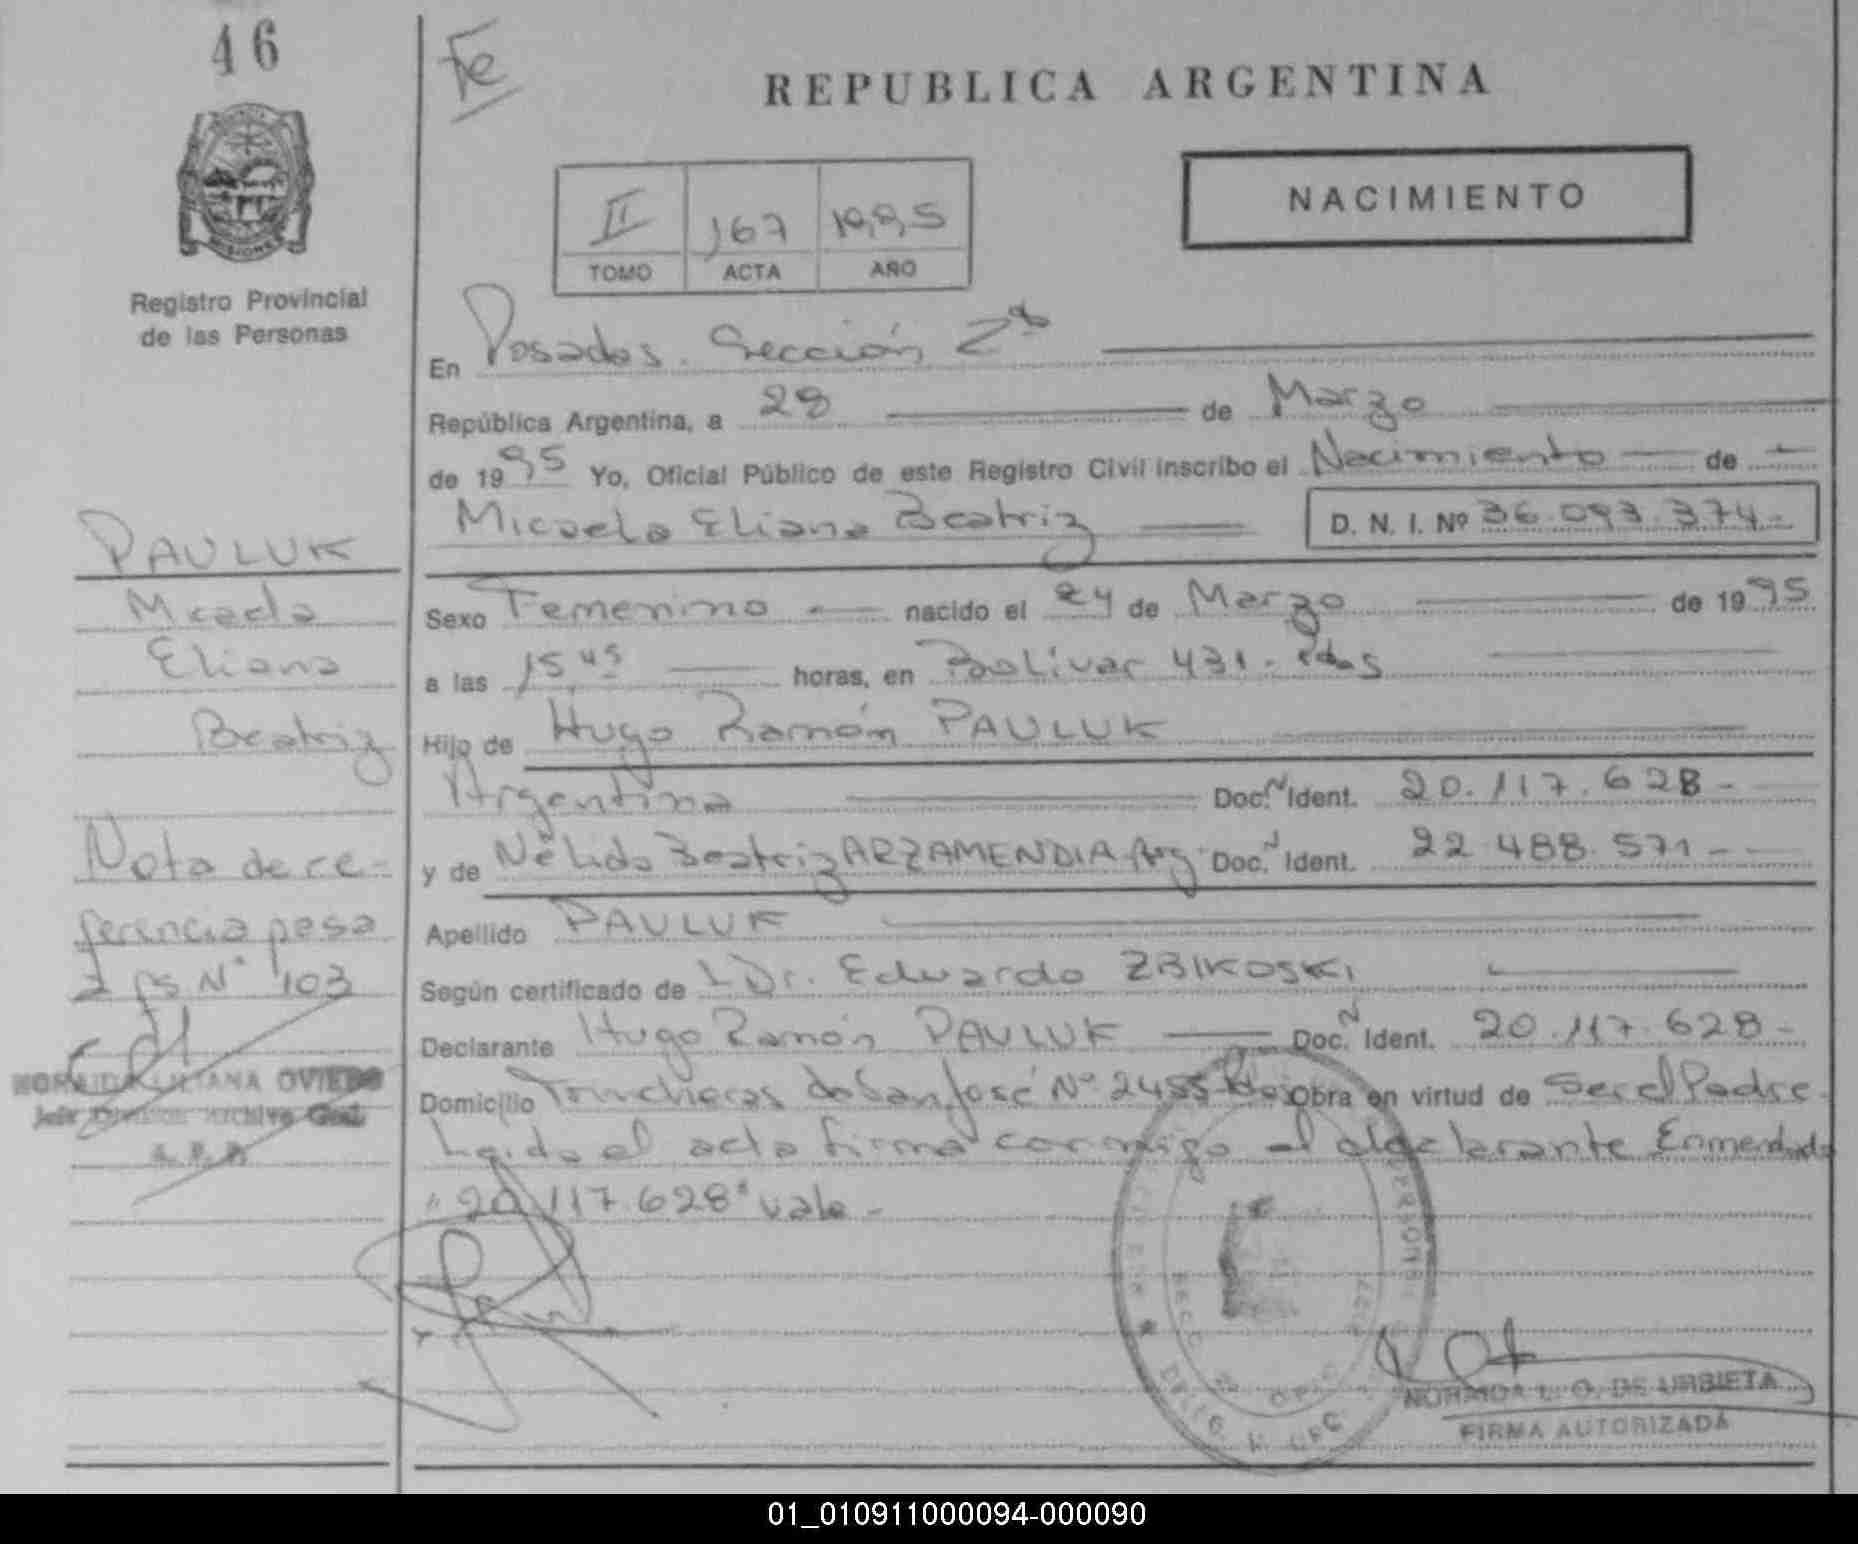 46
Fe
REPUBLICA ARGENTINA
NACIMIENTO
II 167 1995
TOMO ACTA AÑO
MISIONES
Registro Provincial
de las Personas
En Posadas. Sección 2ª
República Argentina, a 28 de Marzo
de 1995 Yo, Oficial Público de este Registro Civil inscribo el Nacimiento de
Micaela Eliana Beatriz D. N. I. Nº 36.093.374.-
PAULUK
Micaela
Eliana
Beatriz
Sexo Femenino nacido el 24 de Marzo de 1995
a las 15,45 horas, en Bolivar 431. Pdas
Hijo de Hugo Ramón PAULUK
Argentina Doc. N Ident. 20.117.628-
y de Nélida Beatriz ARZAMENDIA Arg Doc. N Ident. 22.488.571-
Apellido PAULUK
Según certificado de Dr. Eduardo ZBIKOSKI
Declarante Hugo Ramón PAULUK Doc. N Ident. 20.117.628-
Domicilio Trincheras de San José Nº 2455 Pdas Obra en virtud de Ser el Padre.
Leida el acta firma conmigo el declarante Enmendado
"20.117.628" vale-
Nota de re-
ferencia pasa
a fs Nº 103
NORAIDA LILIANA OVIEDO
Jefe División Archivo Gral.
R. P. P.
NORAIDA L. O. DE URBIETA
FIRMA AUTORIZADA
01_010911000094-000090